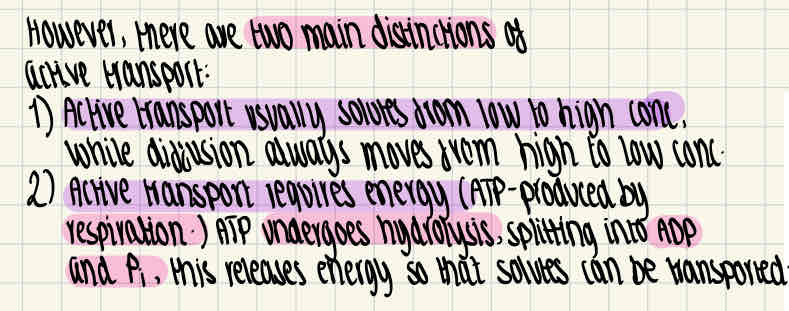 However, there are two main distinctions of
active transport:
1) Active transport usually solutes from low to high conc,
while diffusion always moves from high to low conc.
2) Active transport requires energy (ATP-produced by
respiration.) ATP undergoes hydrolysis, splitting into ADP
and Pi, this releases energy so that solutes can be transported.